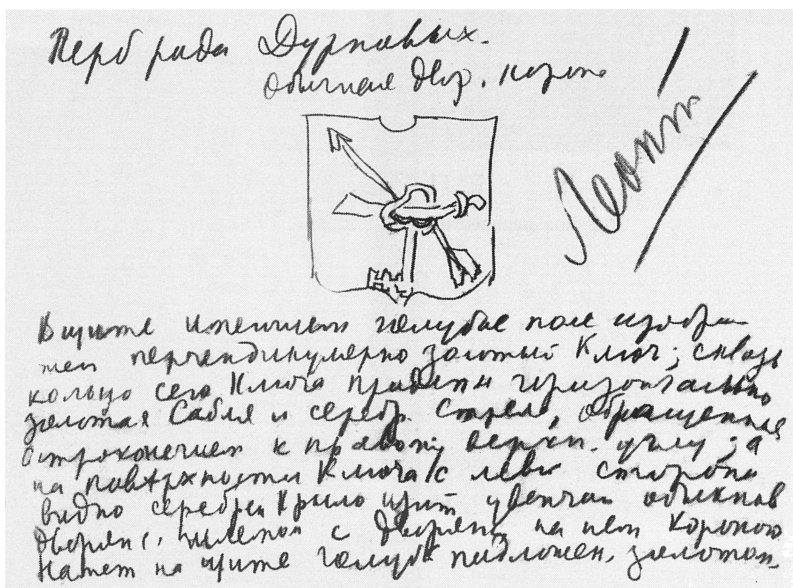 Герб рода Дурновых.
Обычная двор. корона
Леонт
В щите имеющем голубое поле изобра-
жен перпендикулярно золотый Ключ; сквозь
кольцо сего Ключа продеты горизонтально
золотая Сабля и серебр. Стрела, обращенная
остроконечием к правому верхн. углу; а
на поверхности Ключа с левы стороны
видно серебрен Крыло щит увенчан обыкнов
дворянс. шлемом с дворянс. на нем короною
Намет на щите голубы подложен. золотом.